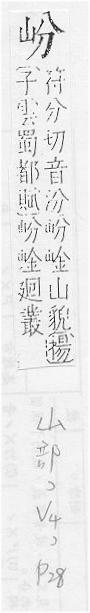 岎
符分切音汾岎崯山貌揚
子雲蜀都賦岎崯廻叢
山部、V4、P28